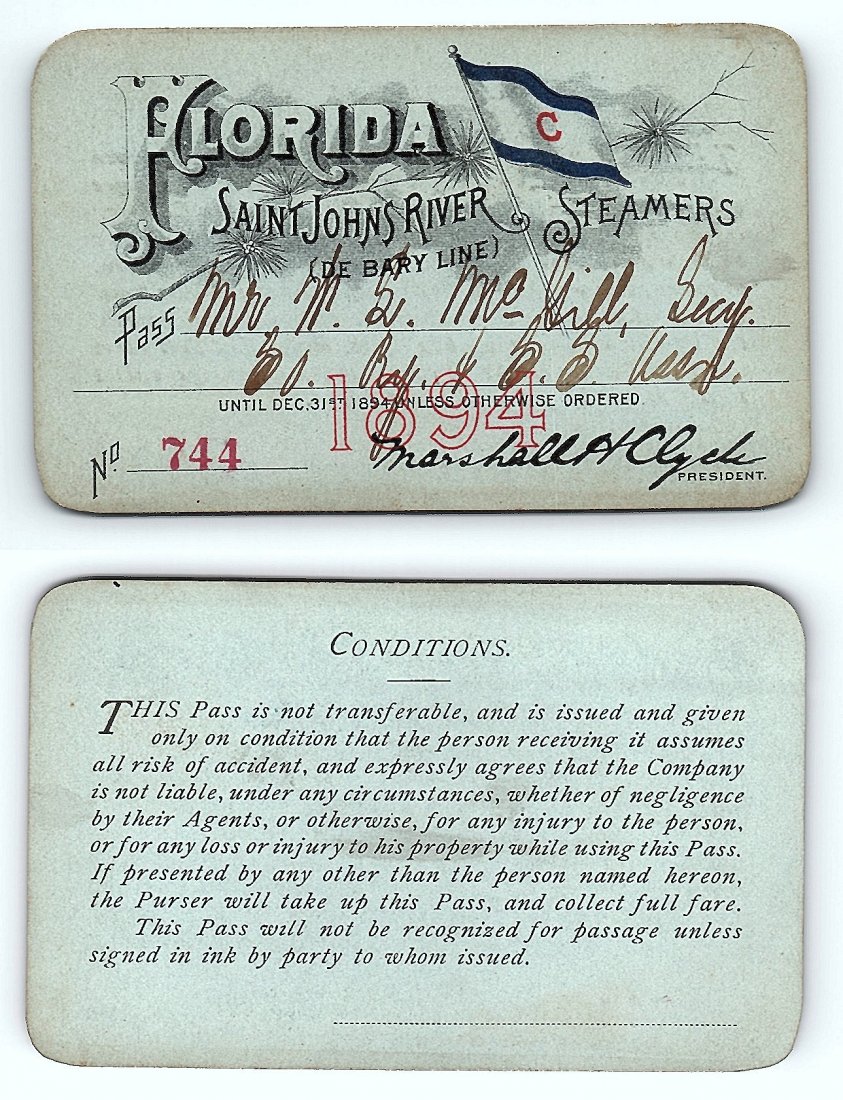 FLORIDA
C
SAINT JOHNS RIVER STEAMERS
(DE BARY LINE)
Pass Mr. W. McGill, Secy.
So. Ry. & S. S. Assn.
1894
UNTIL DEC. 31ST 1894 UNLESS OTHERWISE ORDERED
No 744
Marshall H Clyde
PRESIDENT.
CONDITIONS.
THIS Pass is not transferable, and is issued and given
only on condition that the person receiving it assumes
all risk of accident, and expressly agrees that the Company
is not liable, under any circumstances, whether of negligence
by their Agents, or otherwise, for any injury to the person,
or for any loss or injury to his property while using this Pass.
If presented by any other than the person named hereon,
the Purser will take up this Pass, and collect full fare.
This Pass will not be recognized for passage unless
signed in ink by party to whom issued.